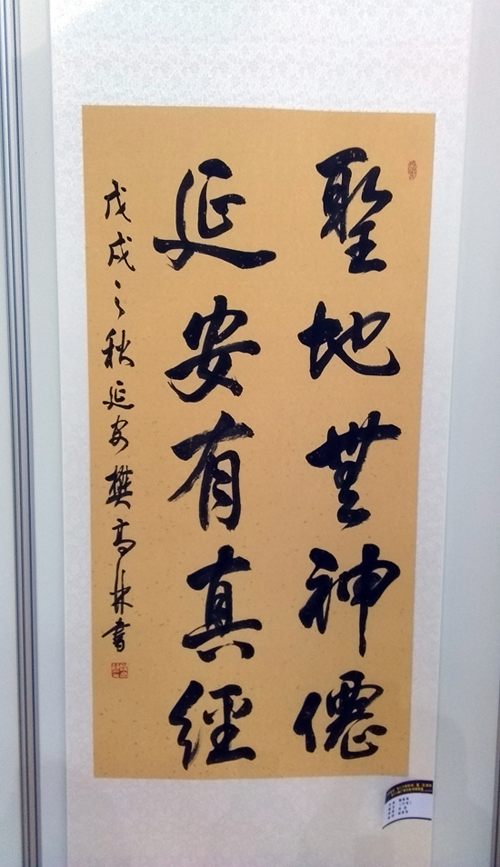 聖地無神僊
延安有真經
戊戌之秋延安樊高林書